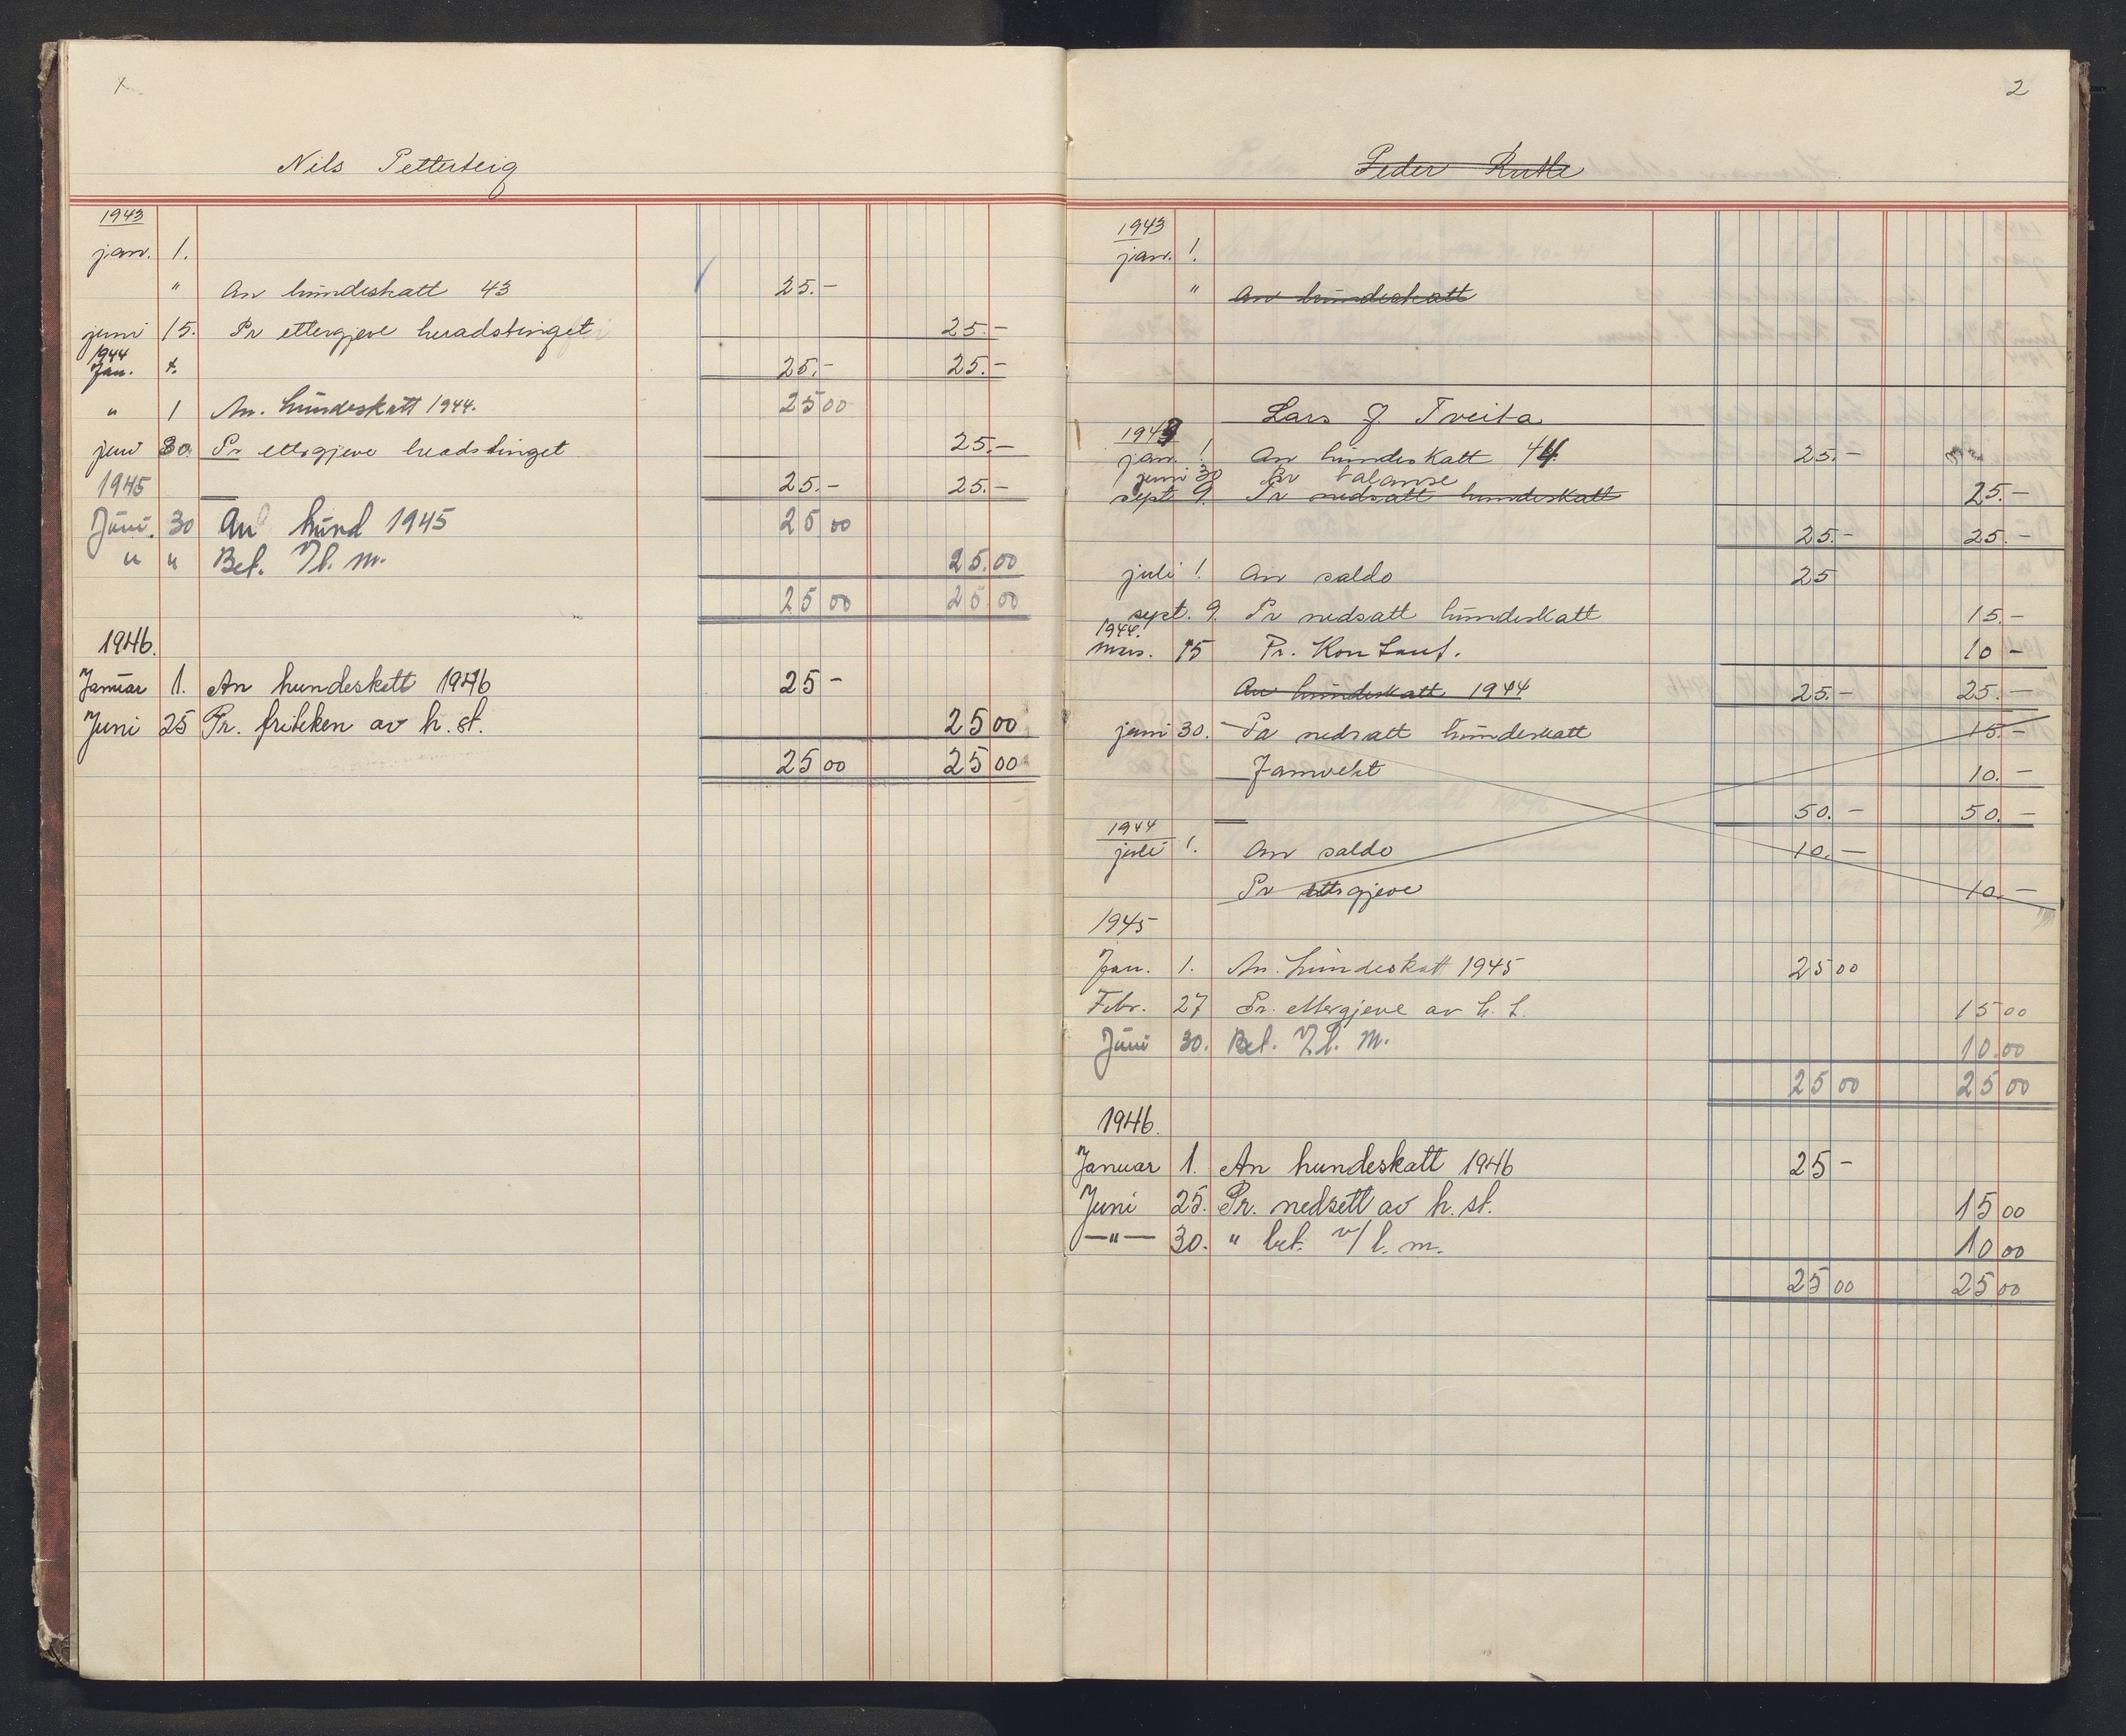 Nils Petterteig
1943
jan. 1.
" An hundeskatt 43 25.-
juni 15. Pr ettergjeve heradstinget 25.-
1944
Jan. 25.- 25.-
" 1 An. hundeskatt 1944. 25 00
juni 30. Pr ettergjeve heradstinget 25.-
1945 25.- 25.-
Juni. 30 An hund 1945 25 00
" " Bet. l. m. 25.00
25 00 25 00
1946.
Januar 1. An hundeskatt 1946 25 -
Juni 25 Pr. friteken av h. st. 25 00
25 00 25 00
2
Peder
1943
jan. 1.
" An hundeskatt
Lars J. Tveita
1943
jan. 1 An hundeskatt 44 25.-
juni 30 Pr balanse
sept. 9. Pr nedsatt hundeskatt 25.-
25.- 25.-
juli 1. An saldo 25
sept. 9. Pr nedsatt hundeskatt 15.-
1944.
mars. 15 Pr. Kontant. 10 -
An hundeskatt 1944 25.- 25.-
juni 30. Pr nedsatt hundeskatt 15.-
Jamvekt 10.-
50.- 50.-
1944
juli 1. An saldo 10.-
Pr ettergjeve 10.-
1945
Jan. 1. An. hundeskatt 1945 25 00
Febr. 27 Pr. ettergjeve av h. t. 15 00
Juni 30. Bet. l. m. 10.00
25 00 25 00
1946.
Januar 1. An hundeskatt 1946 25 -
Juni 25. Pr. nedsett av h. st. 15 00
—"— 30. " bet. v/ l. m. 10 00
25 00 25 00